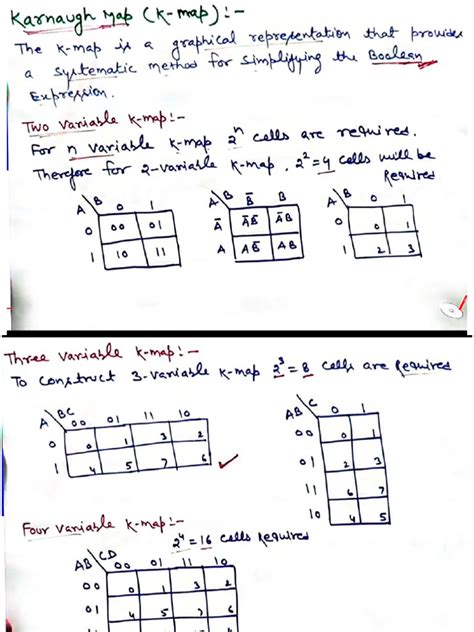 Karnaugh Map (K-map) :-
The K-map is a graphical representation that provides
a systematic method for simplifying the Boolean
Expression.
Two Variable K-map :-
For n variable K-map 2^n cells are required.
Therefore for 2-variable K-map, 2^2 = 4 cells will be
Required
A B 0 1
0 00 01
1 10 11
A B B̅ B
A̅ A̅B̅ A̅B
A AB̅ AB
A B 0 1
0 0 1
1 2 3
Three Variable K-map :-
To construct 3-variable K-map 2^3 = 8 cells are Required
A BC 00 01 11 10
0 0 1 3 2
1 4 5 7 6
AB C 0 1
00 0 1
01 2 3
11 6 7
10 4 5
Four Variable K-map :-
2^4 = 16 cells Required
AB CD 00 01 11 10
00 0 1 3 2
01 4 5 7 6